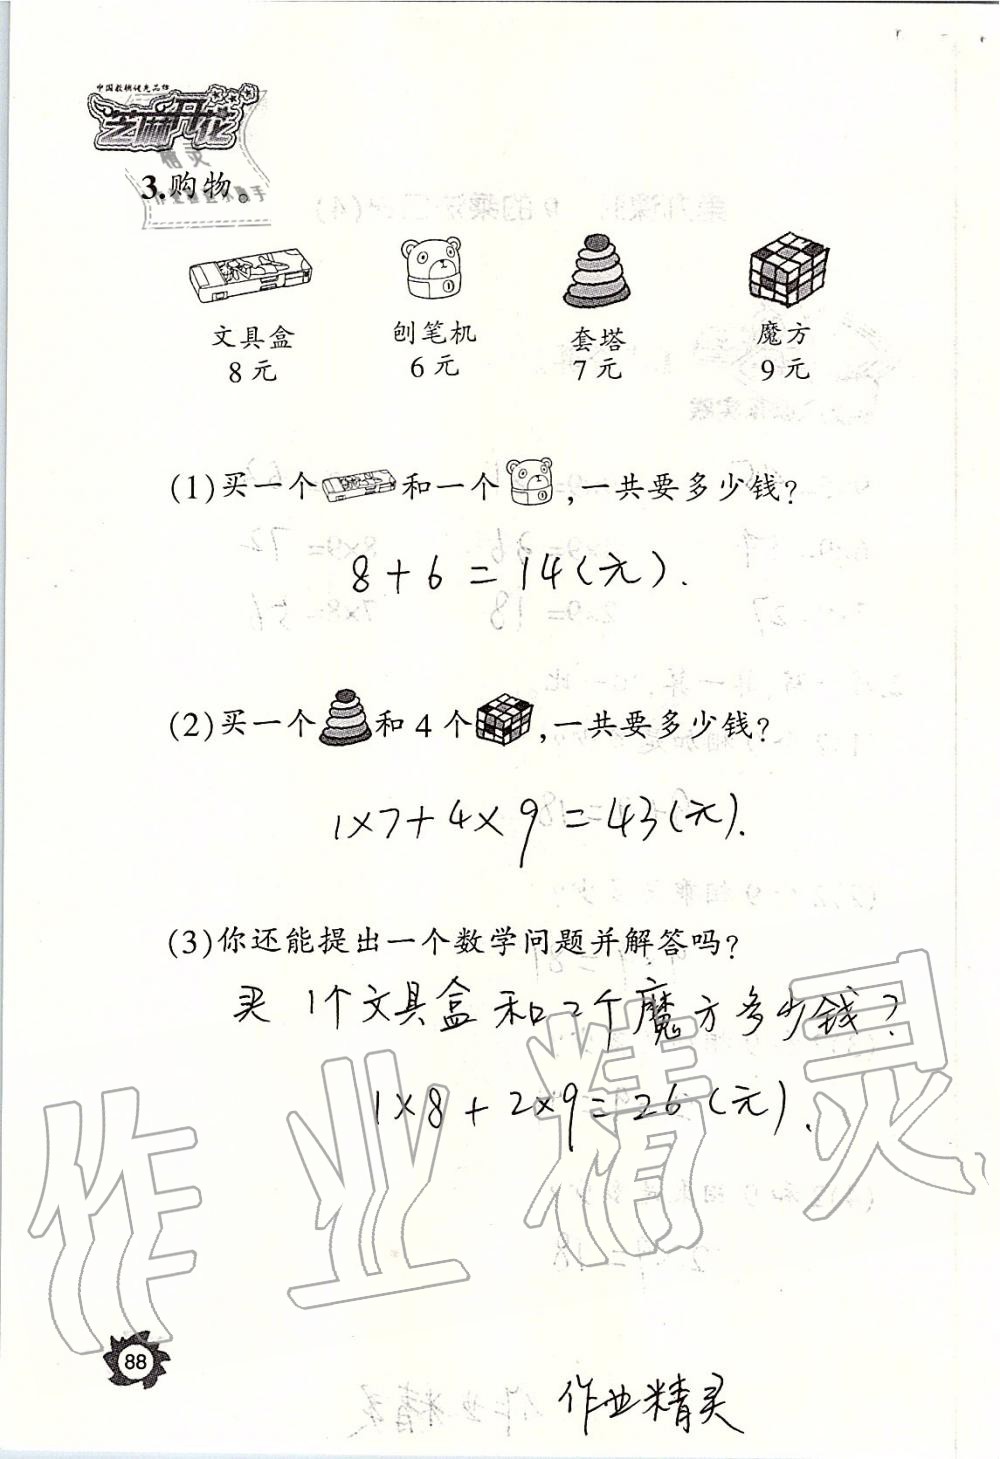 中国教辅优秀品牌
芝麻开花
3.购物。
文具盒 刨笔机 套塔 魔方
8元 6元 7元 9元
(1)买一个和一个,一共要多少钱?
8+6=14(元).
(2)买一个和4个,一共要多少钱?
1×7+4×9=43(元).
(3)你还能提出一个数学问题并解答吗?
买1个文具盒和2个魔方多少钱?
1×8+2×9=26(元).
作业精灵
88
作业精灵